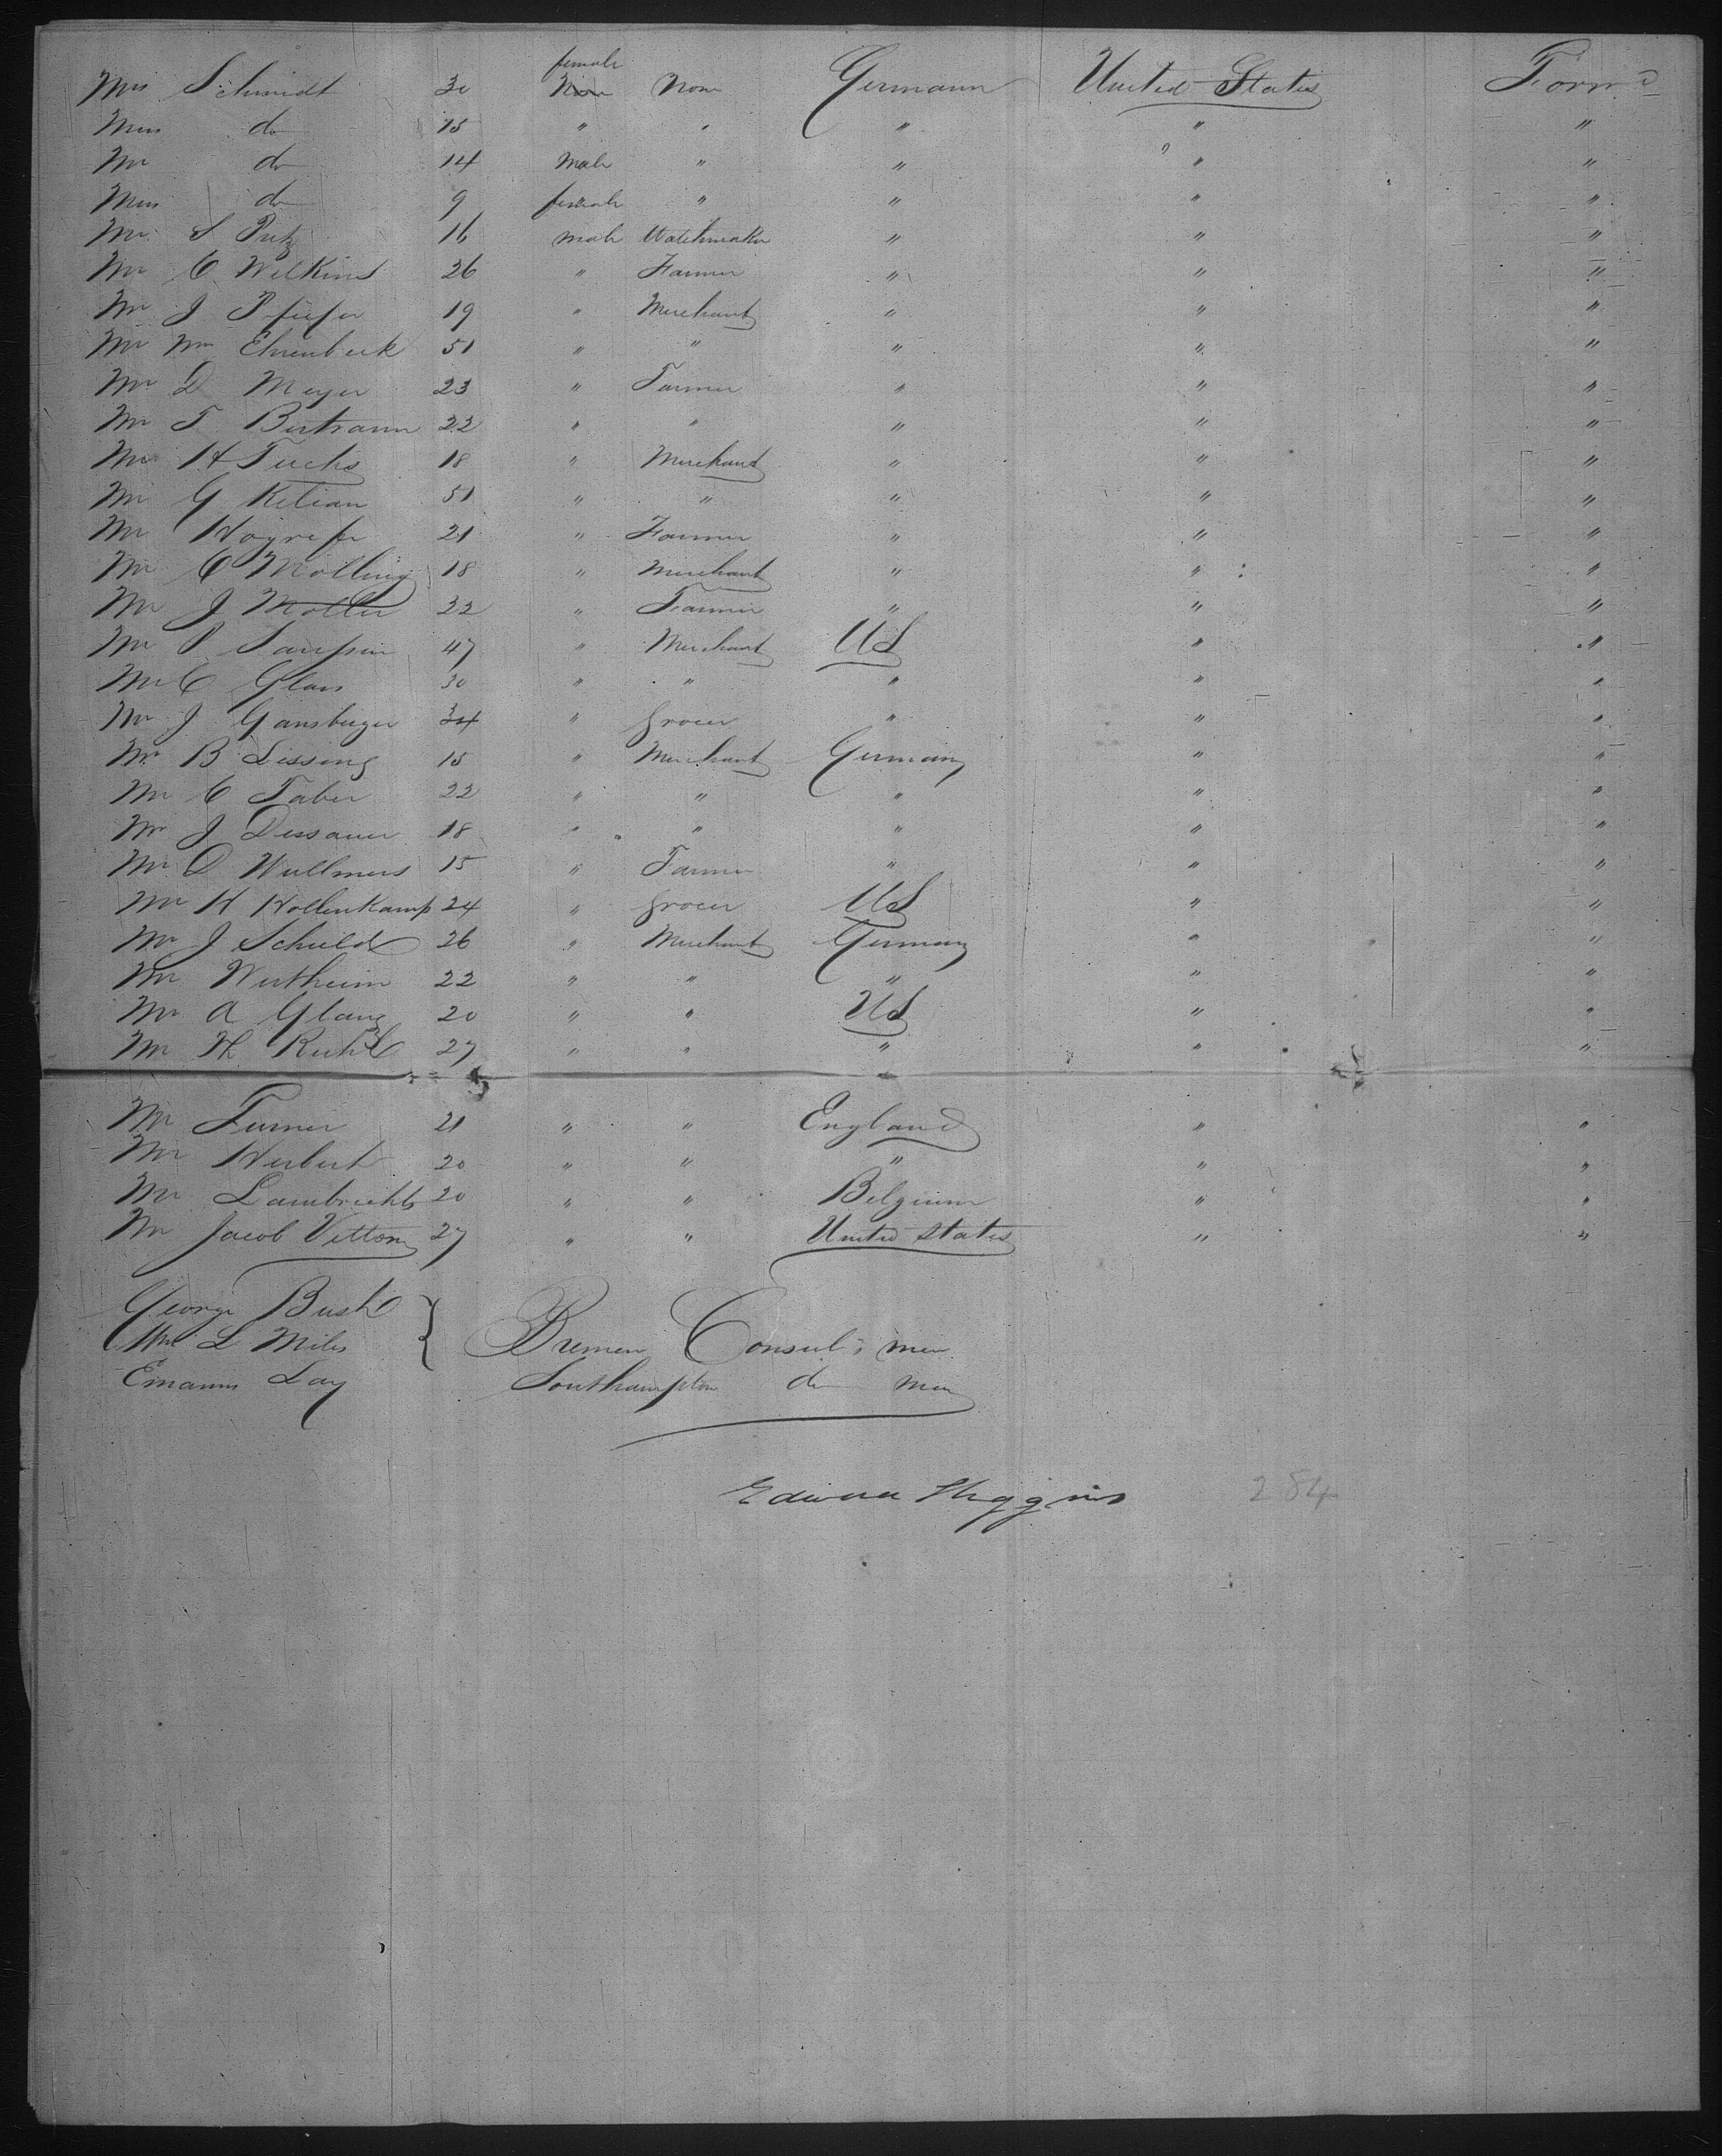 Mrs Schmidt 30 female None None Germann United States Forwd
Miss do 15 " " " " "
Mr do 14 Male " " " "
Miss do 9 female " " " "
Mr S Putz 16 male Watchmaker " " "
Mr C Wilkins 26 " Farmer " " "
Mr J Pfeifer 19 " Merchant " " "
Mr Wm Ehrenbeck 51 " " " " "
Mr D Meyer 23 " Farmer " " "
Mr F Bertram 22 " " " " "
Mr H Fuchs 18 " Merchant " " "
Mr G Kilian 51 " " " " "
Mr Hogrefe 21 " Farmer " " "
Mr C Molling 18 " Merchant " " "
Mr J Moller 22 " Farmer " " "
Mr P 47 " Merchant US " "
Mr C Glass 30 " " " " "
Mr J Gansberger 34 " Grocer " " "
Mr B Lissing 15 " Merchant Germany " "
Mr C Faber 22 " " " " "
Mr J Dessauer 18 " " " " "
Mr D Wullmers 15 " Farmer " " "
Mr H Hollenkamp 24 " Grocer US " "
Mr J Schield 26 " Merchant Germany " "
Mr Wertheim 22 " " " " "
Mr A Glanz 20 " " US " "
Mr H Ruhl 27 " " " " "
Mr Turner 21 " " England " "
Mr Herbert 20 " " " " "
Mr Lambrechts 20 " " Belgium " "
Mr Jacob Vettory 27 " " United States " "
George Bush
Wm L Miles } Bremen Consul's men
Day Southampton do man
Edward Higgins 284